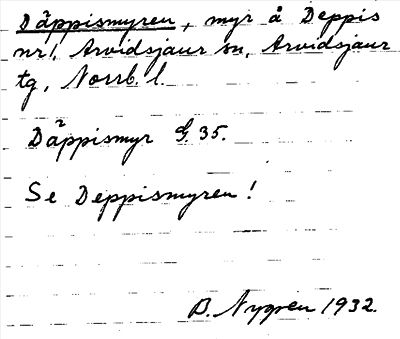 Däppismyren, myr å Deppis
nr 1, Arvidsjaur sn, Arvidsjaur
tg, Norrb. l.
Däppismyr G 35.
Se Deppismyren!
B. Nygren 1932.